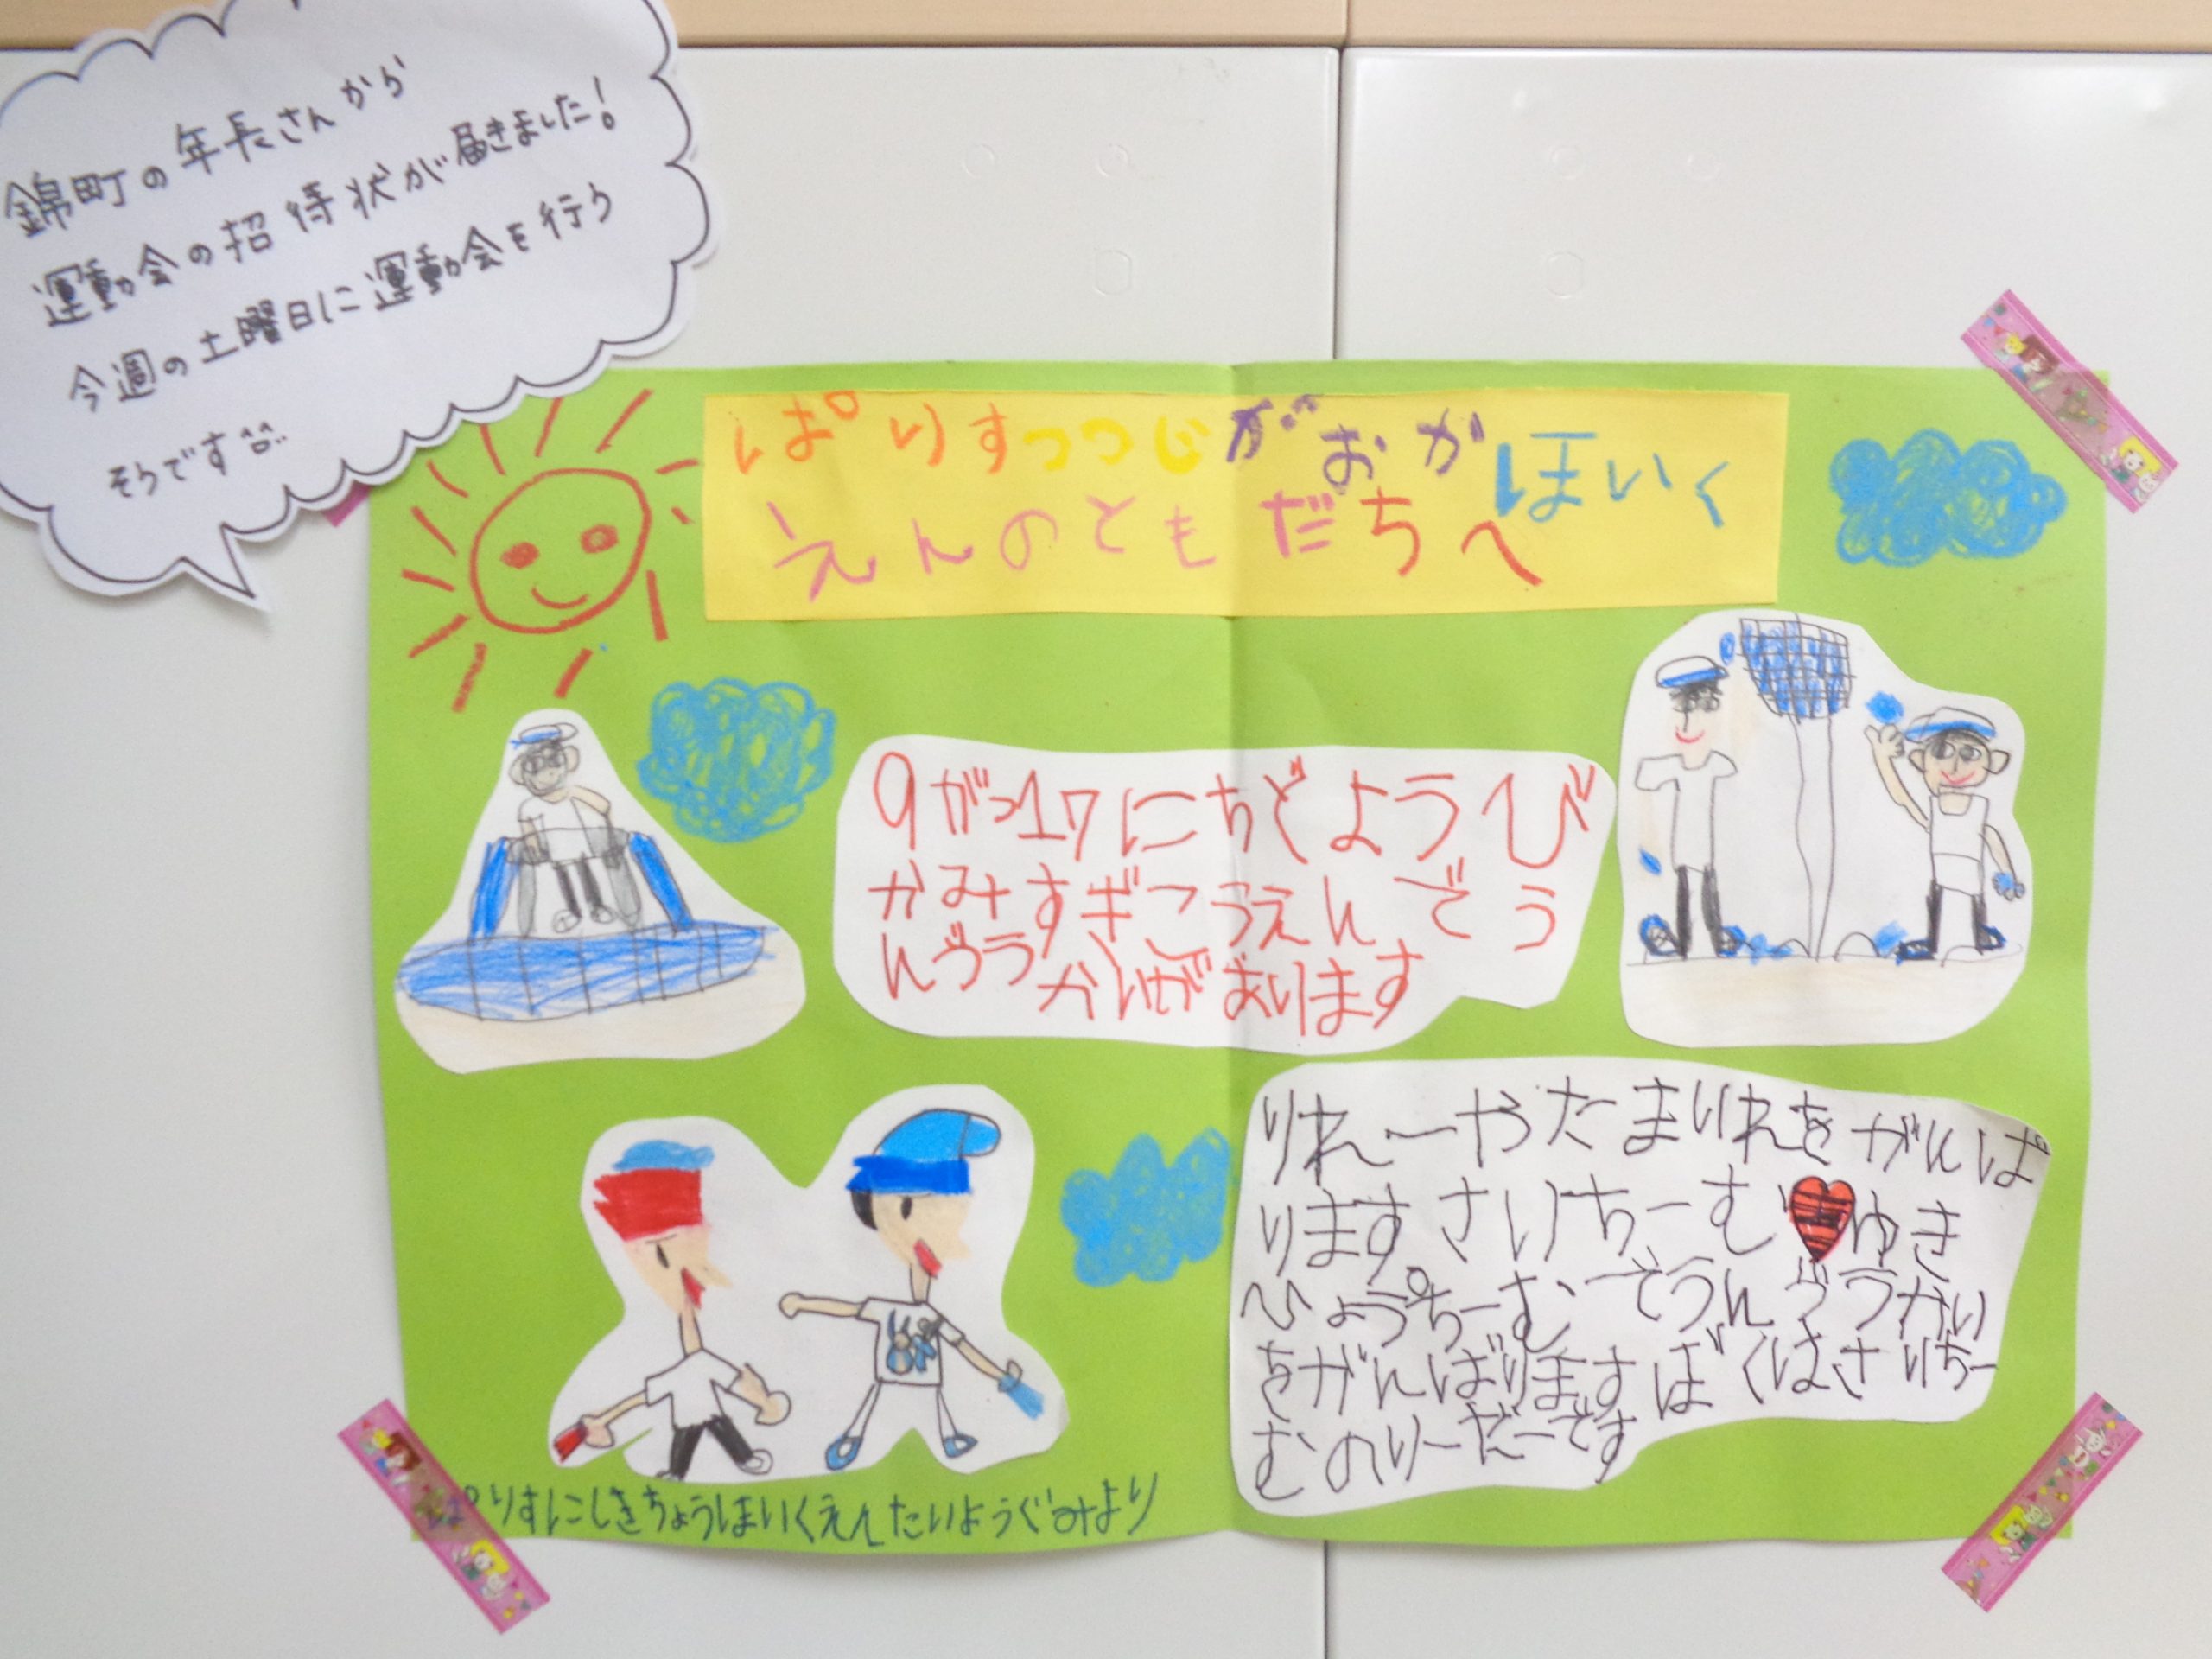 錦町の年長さんから
運動会の招待状が届きました!
今週の土曜日に運動会を行う
そうです^^
ぱりすつつじがおかほいく
えんのともだちへ
9がつ17にちどようび
かみすぎこうえんでう
んどうかいがあります
りれーやたまいれをがんば
ります さいちーむ♥ゆき
ひょうちーむでうんどうかい
をがんばります ぼくはさいちー
むのりーだーです
ぱりすにしきちょうほいくえんたいようぐみより